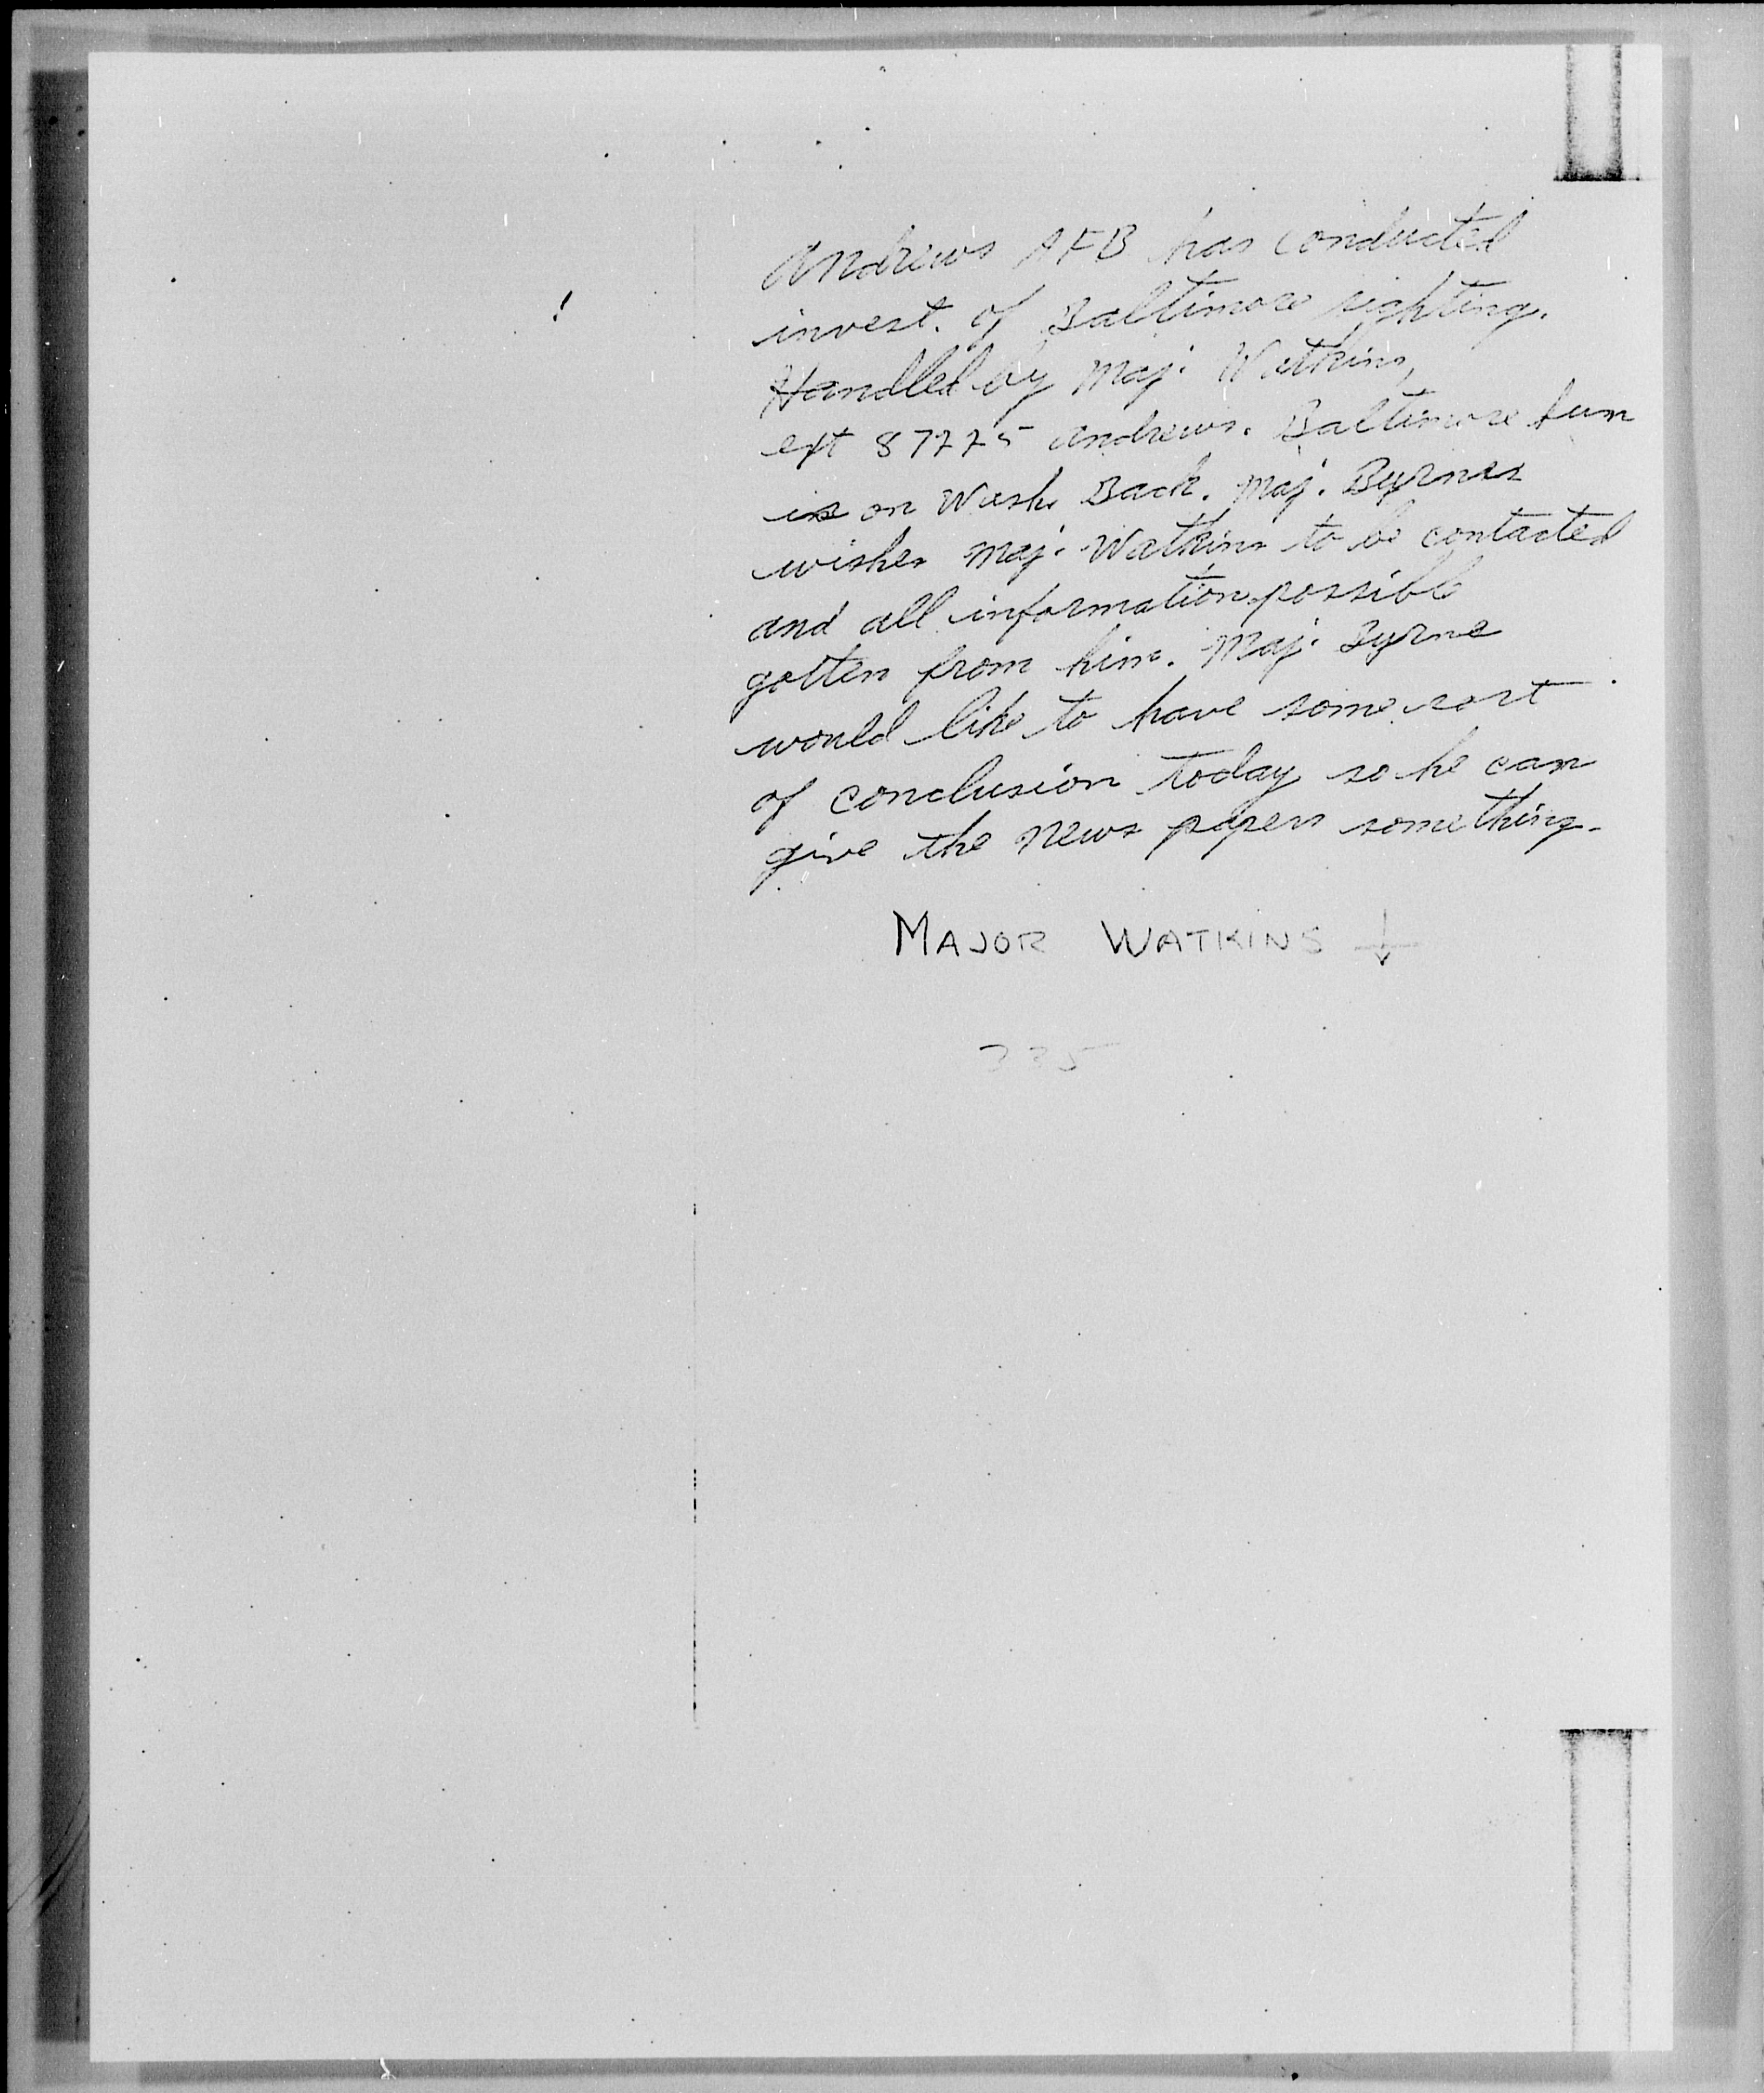 Andrews AFB has conducted
invest. of Baltimore sighting.
Handled by Maj. Watkins,
ext 87225 Andrews. Baltimore Sun
is on Wash. Back. Maj. Byrnes
wishes Maj. Watkins to be contacted
and all information possible
gotten from him. Maj. Byrne
would like to have some sort
of conclusion today so he can
give the news papers something.
MAJOR WATKINS ↓
335